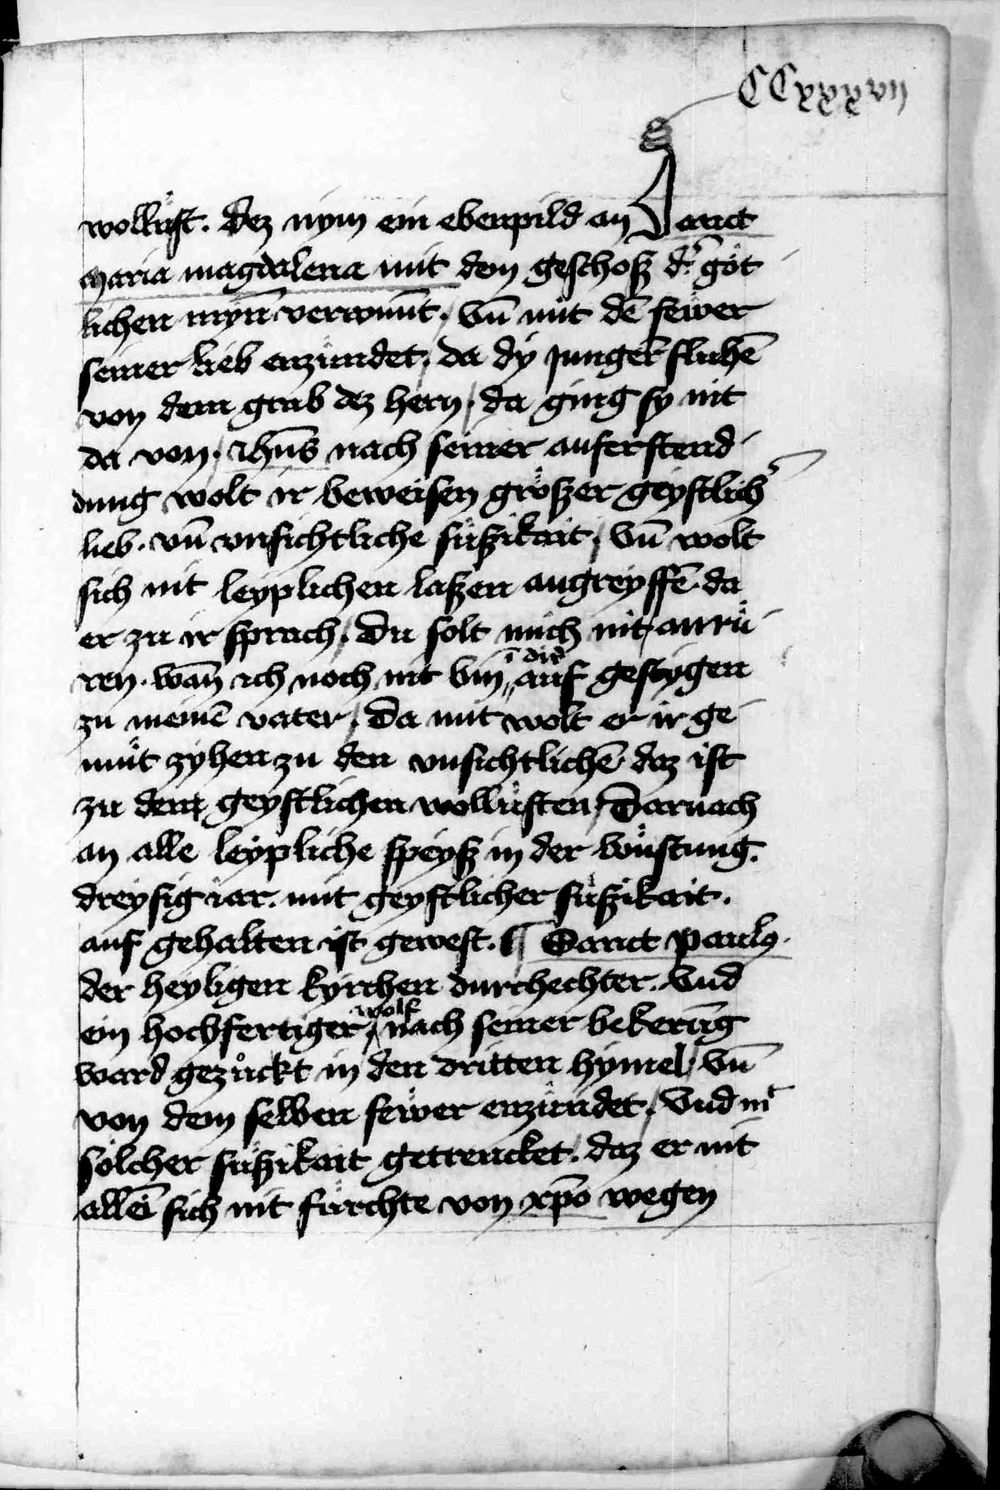 CCxxxvij
wollůst. dez nym ein ebenpild an Sanct
maria magdalena mit dem geschosz dˀ göt
lichen myn̄ verwunt / Vn̄ mit dē fewer
seiner lieb enzündet / da dy junger fluhē
von dem grab dez hern / da ging sy nit
da von / ihūs nach seiner auferstend
dung wolt ir beweisen gröszer geystlichˀ
lieb. vn̄ vnsichtliche süszikait / Vn̄ wolt
sich nit leyplichen laszen angreyffē. da
er zu ir sprach / Du solt mich nit anrü
ren. wan̄ ich noch nit bin ī dir auf gestygen
zu meinē vater / Da mit wolt er ir ge
müt zyhen zu den vnsichtlichē daz ist
zu dem geystlichen wollüsten / Darnach
an alle leypliche speysz in der wüstung.
dreysig iar. mit geystlicher süszikait.
auf gehalten ist gewest. ¶ Sanct paulꝰ.
der heyligen kyrchen durchechter. Vnd
ein hochfertiger wolf / nach seiner bekerūg
ward gezuckt in den dritten hymel / Vn̄
von dem selben fewer enzündet / Vnd mˀ
sölcher süszikait getrencket / daz er nit
allē sich nit fürchte von xp̄o wegen